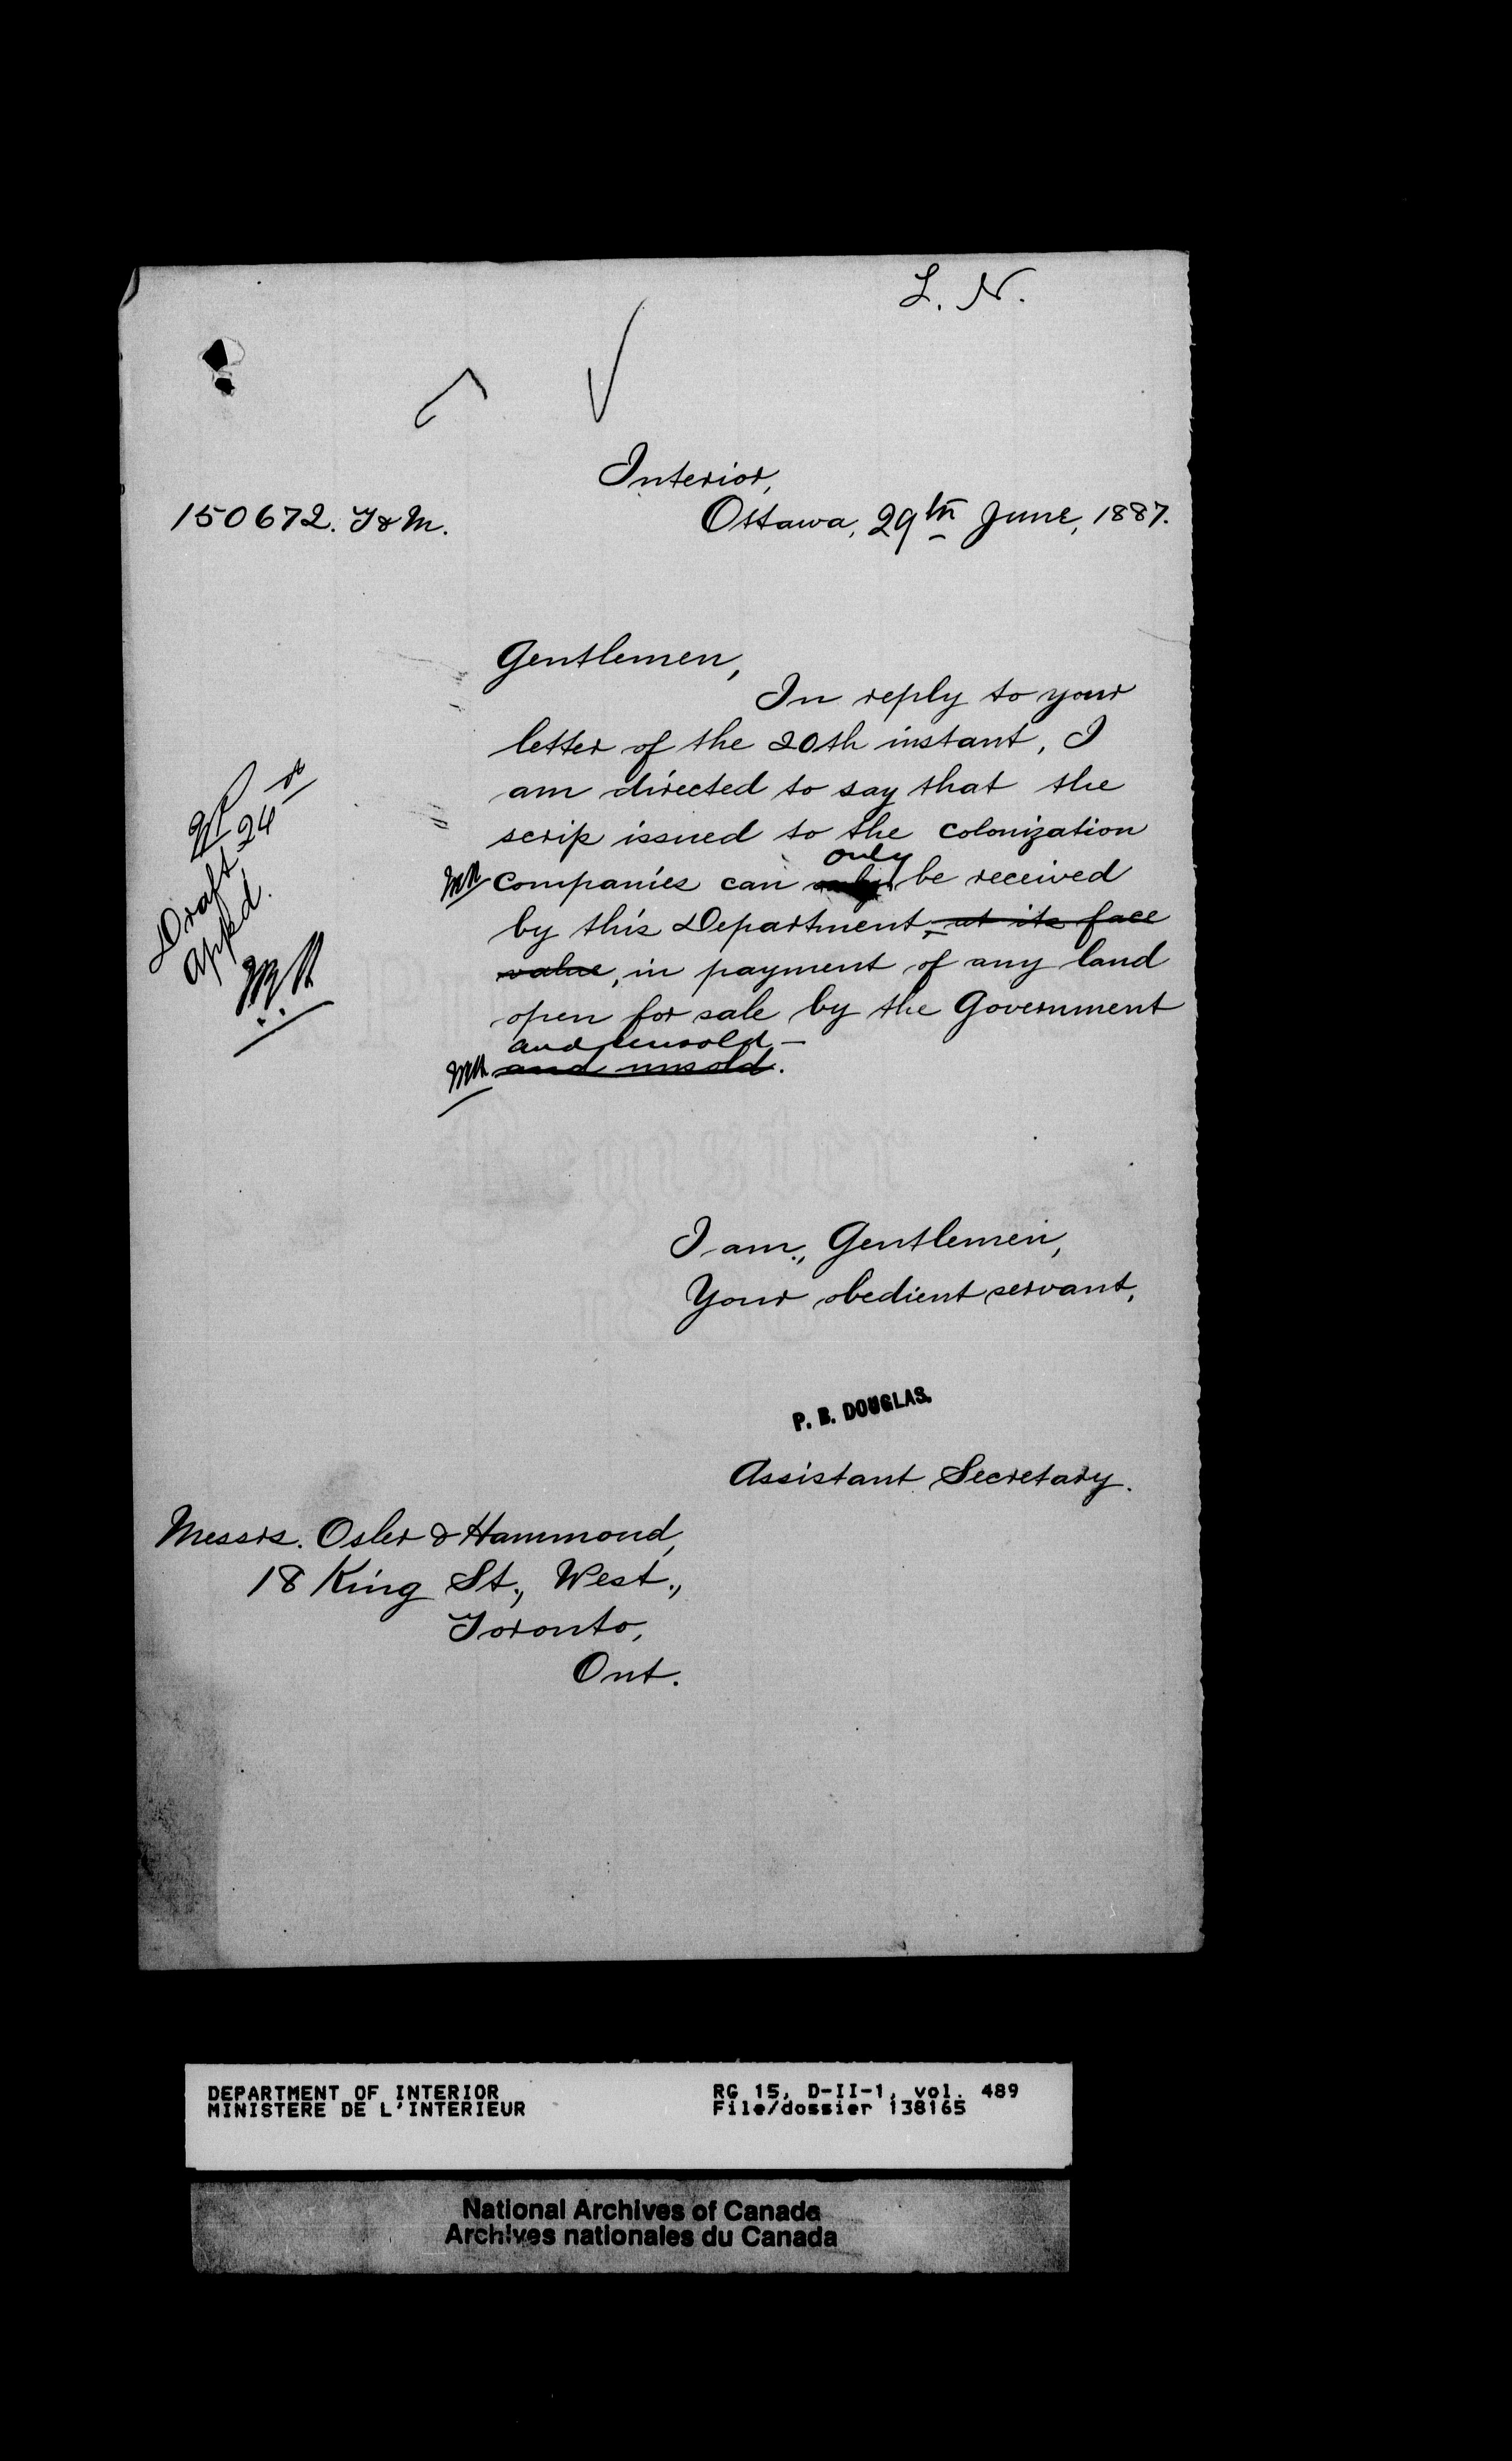 L. N.
Interior,
150672. T & M.
Ottawa, 29th June, 1887.
Gentlemen,
In reply to your
letter of the 20th instant, I
am directed to say that the
scrip issued to the colonization
only
companies can only be received
by this Department, at its face
value, in payment of any land
open for sale by the Government
and unsold –
and unsold.
Draft 24
appd.
I am, Gentlemen,
Your obedient servant,
P. B. DOUGLAS.
Assistant Secretary.
Messrs. Osler & Hammond,
18 King St., West.,
Toronto,
Ont.
Register
DEPARTMENT OF INTERIOR
MINISTERE DE L'INTERIEUR
RG 15, D-II-1, vol. 489
File/dossier 138165
National Archives of Canada
Archives nationales du Canada